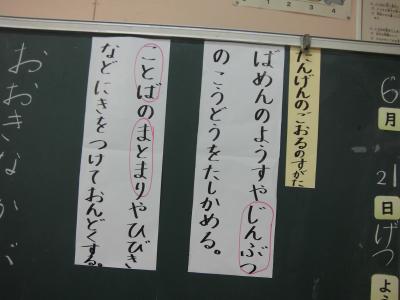 6
月
21
日
げつ
よう
たんげんのごおるのすがた
ばめんのようすやじんぶつ
のこうどうをたしかめる。
ことばのまとまりやひびき
などにきをつけておんどくする。
おおきなかぶ